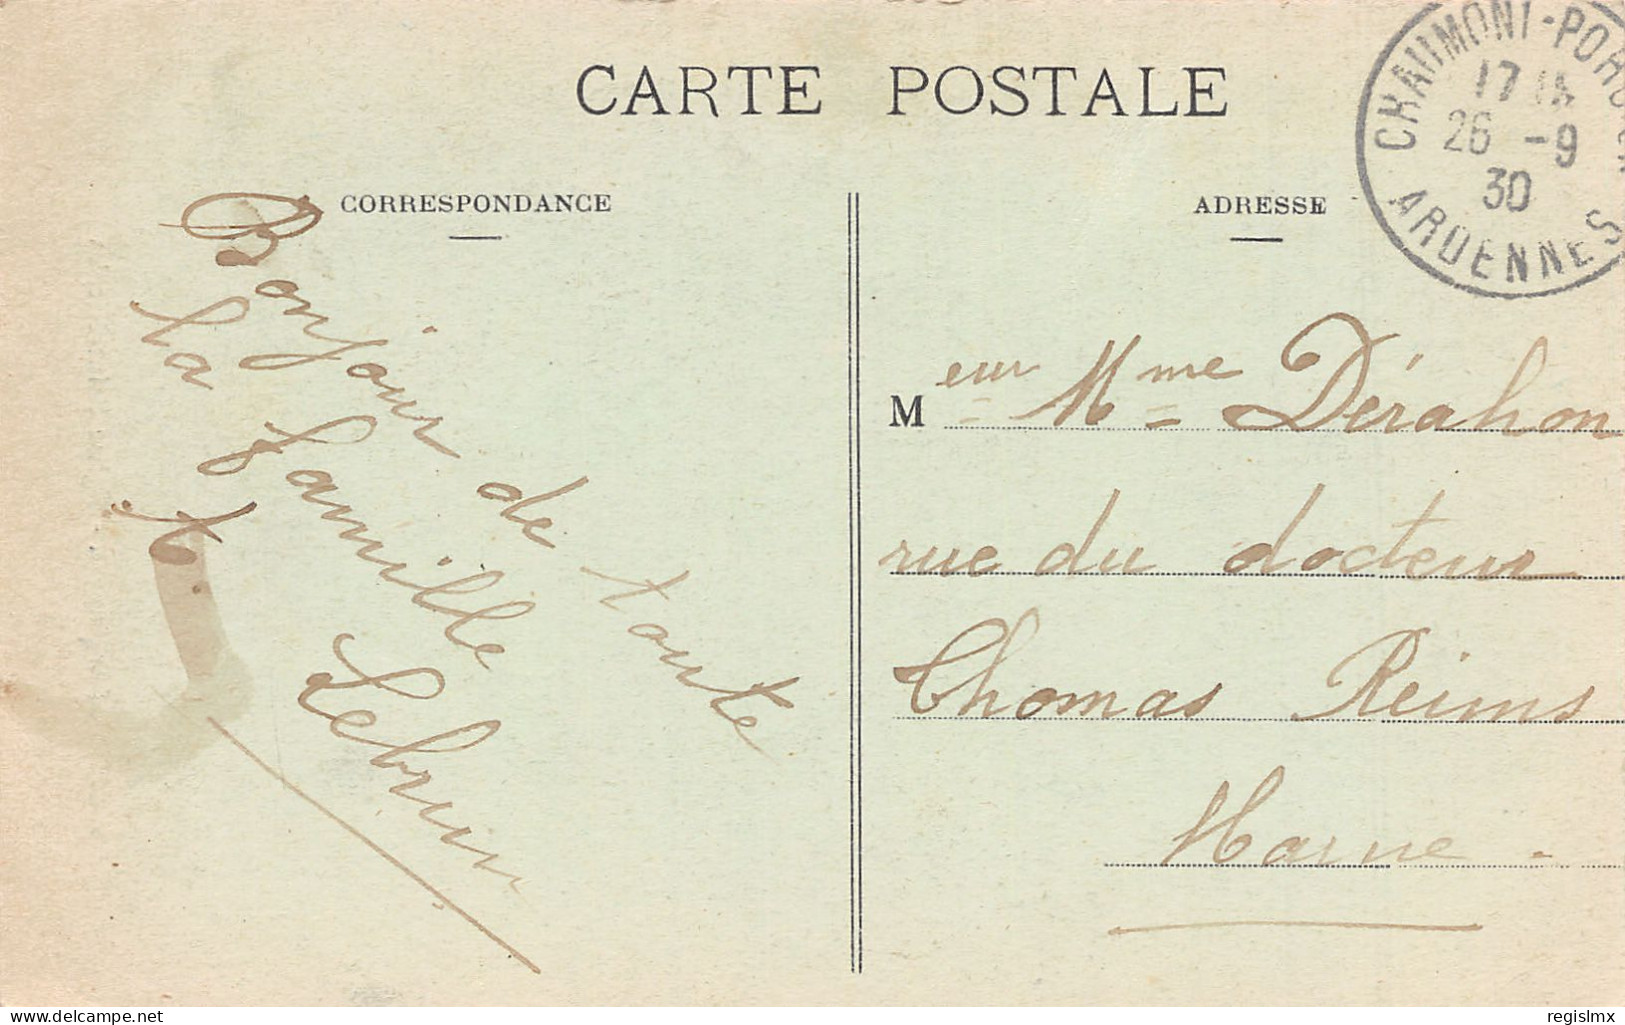 CARTE POSTALE
CORRESPONDANCE
Bonjour de toute
la famille
Lebrun
ADRESSE
M eur Mme Dérahon
rue du docteur
Thomas Reims
Marne
CHAUMONT-PORCIEN
26 -9
30
ARDENNES
www.delcampe.net
regislmx